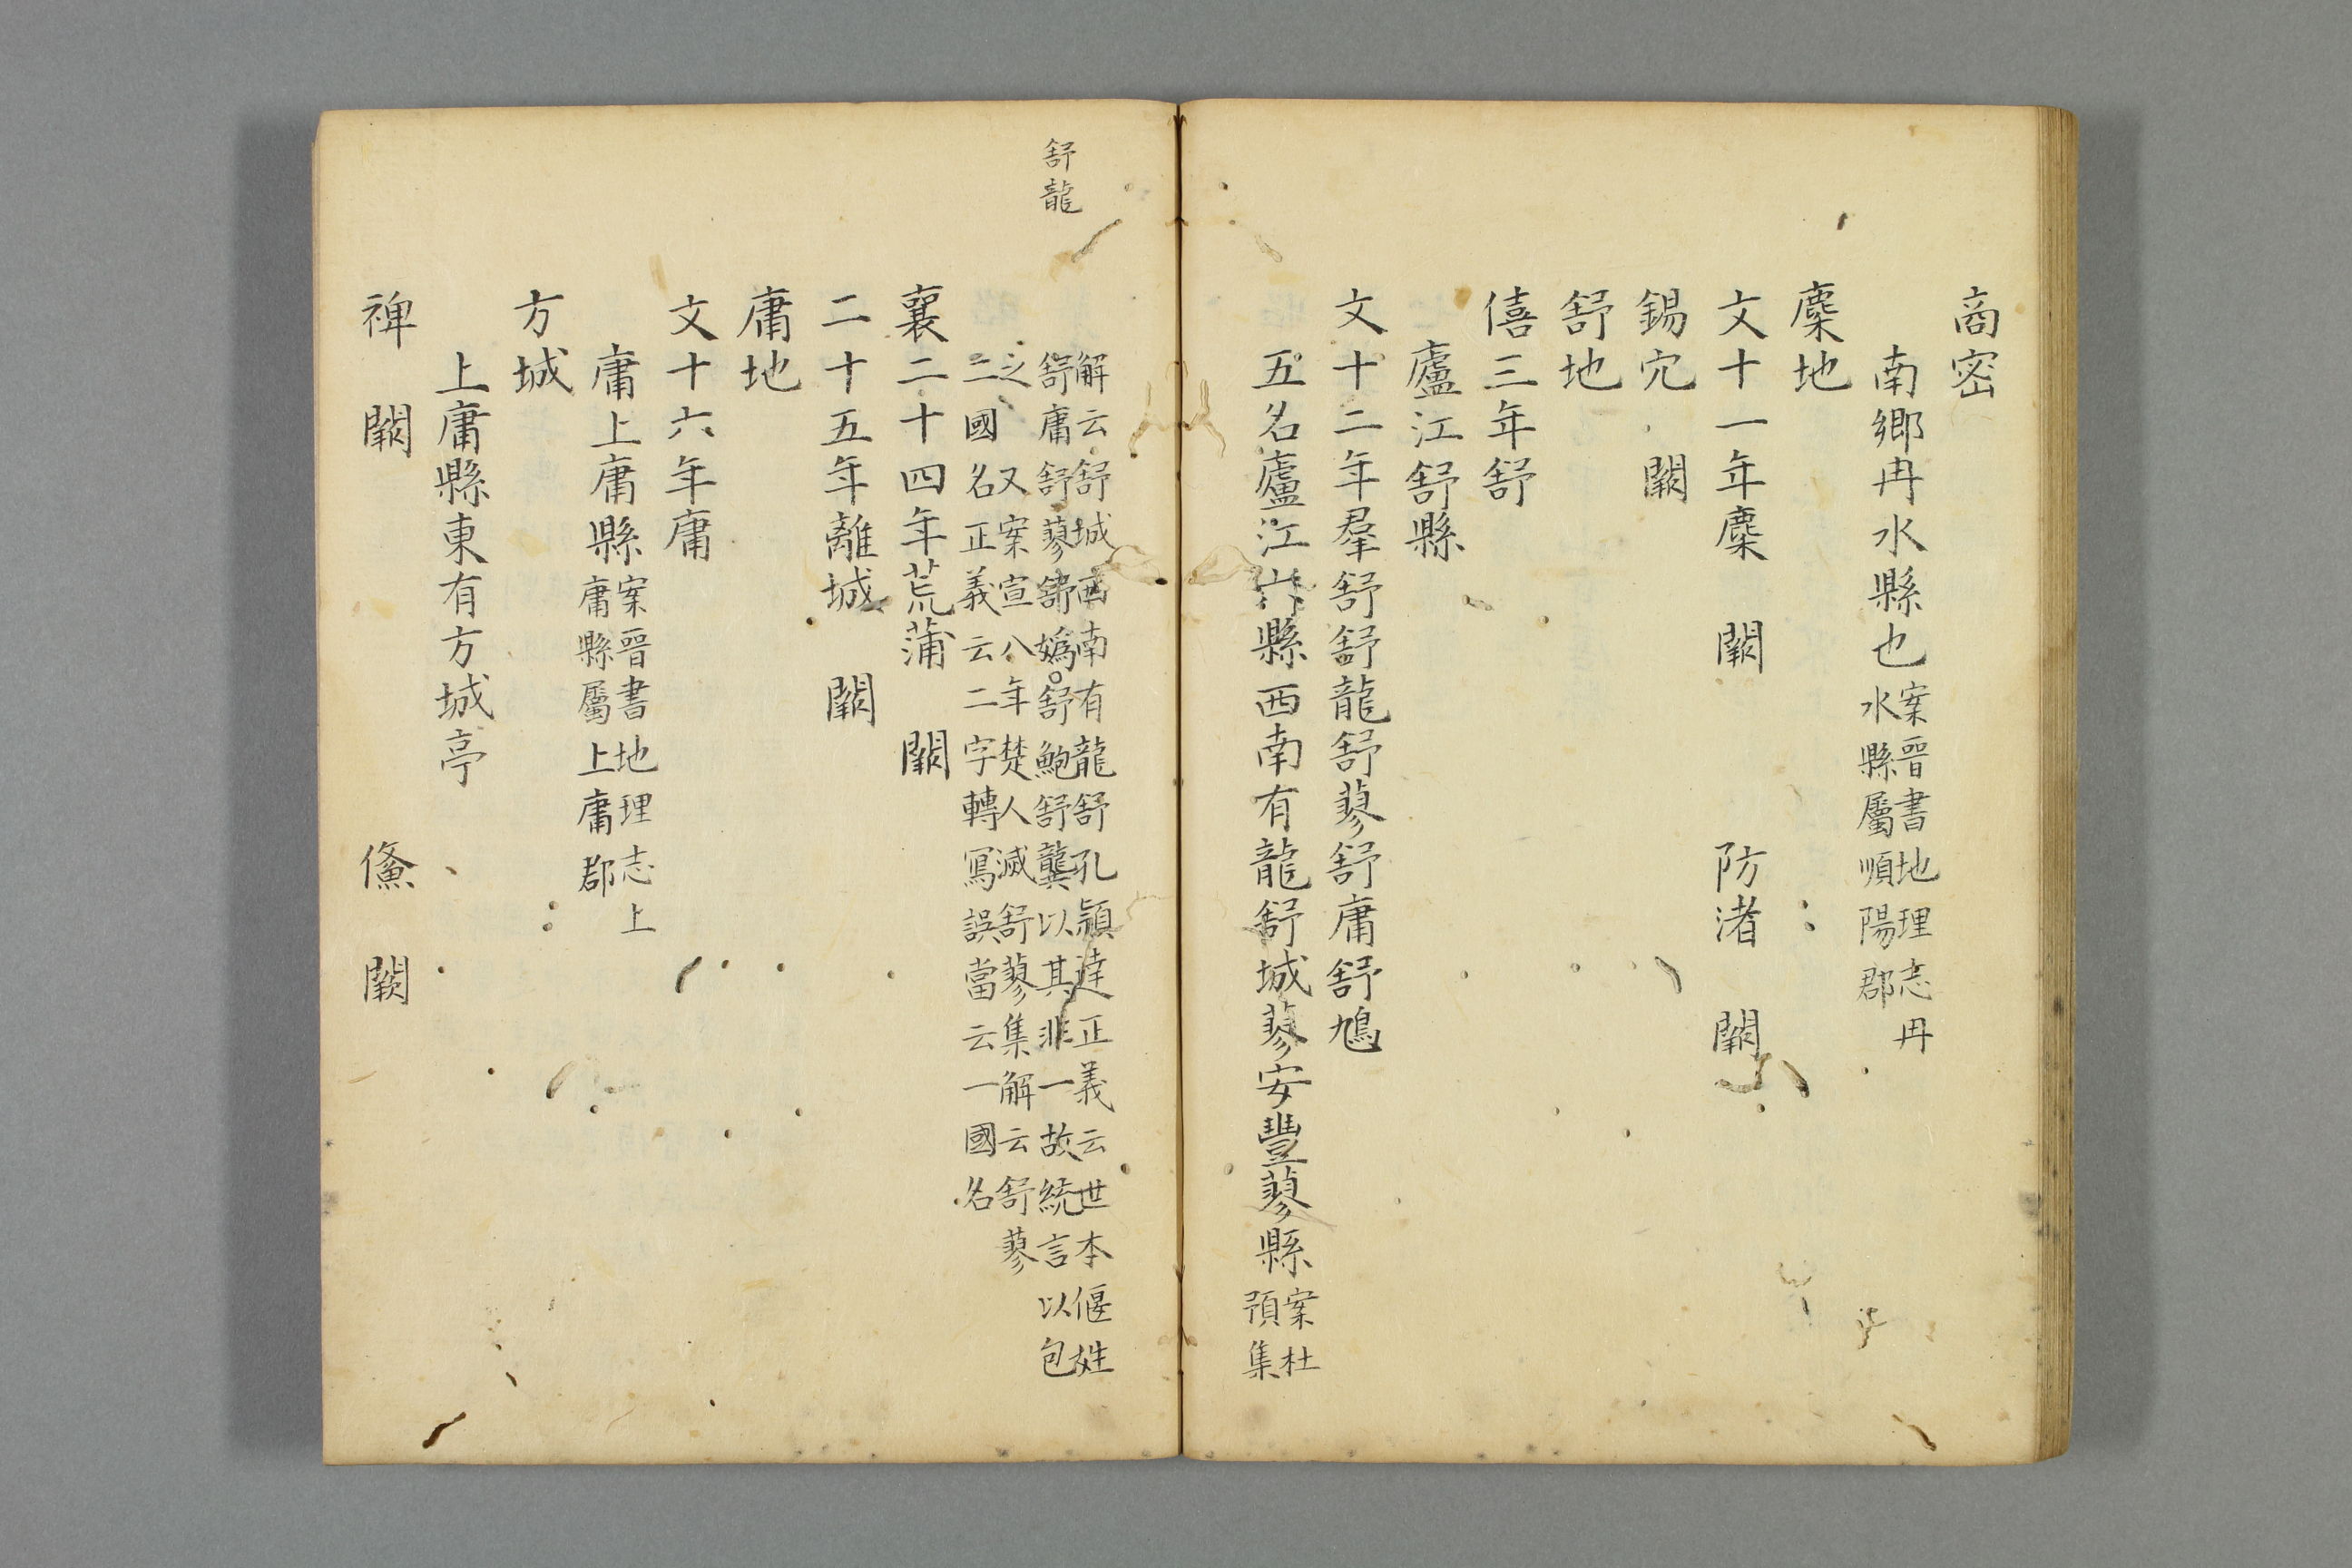 商密
南鄉冉水縣也案晉書地理志冉
水縣屬順陽郡
麇地
文十一年麇　闕　防渚　闕
錫穴　闕
舒地
僖三年舒
廬江舒縣
文十二年羣舒舒龍舒蓼舒庸舒鳩
五名廬江六縣西南有龍舒城蓼安豐蓼縣案杜
預集
舒龍
解云舒城西南有龍舒孔穎達正義云世本偃姓
舒庸舒蓼舒鳩舒鮑舒龔以其非一故統言以包
之　又案宣八年楚人滅舒蓼集解云舒蓼
二國名正義云二字轉寫誤當云一國名
襄二十四年荒蒲　闕
二十五年離城　闕
庸地
文十六年庸
庸上庸縣案晉書地理志上
庸縣屬上庸郡
方城
上庸縣東有方城亭
裨　闕　鯈　闕